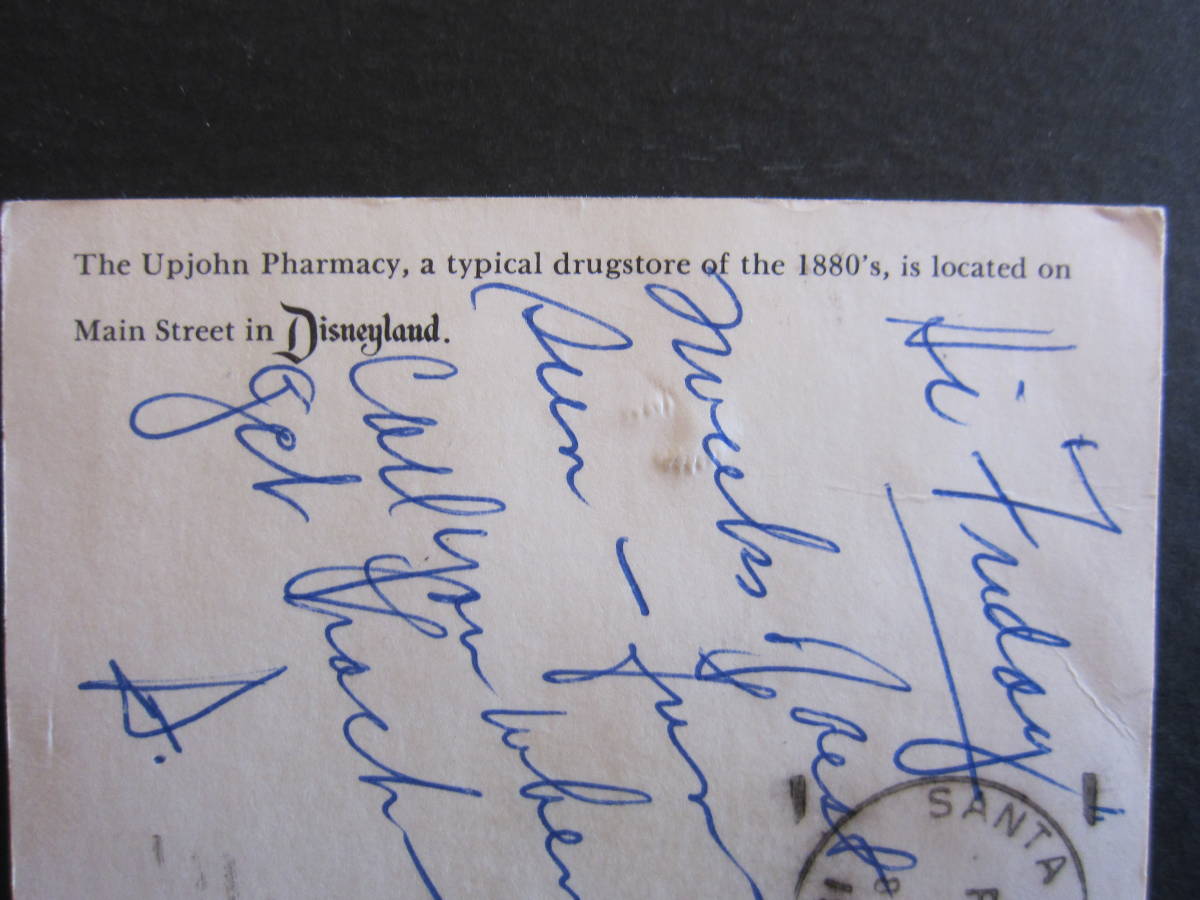 The Upjohn Pharmacy, a typical drugstore of the 1880's, is located on
Main Street in Disneyland.
Hi
Friday
Sun - fun
Call you when
get back
D.
SANTA